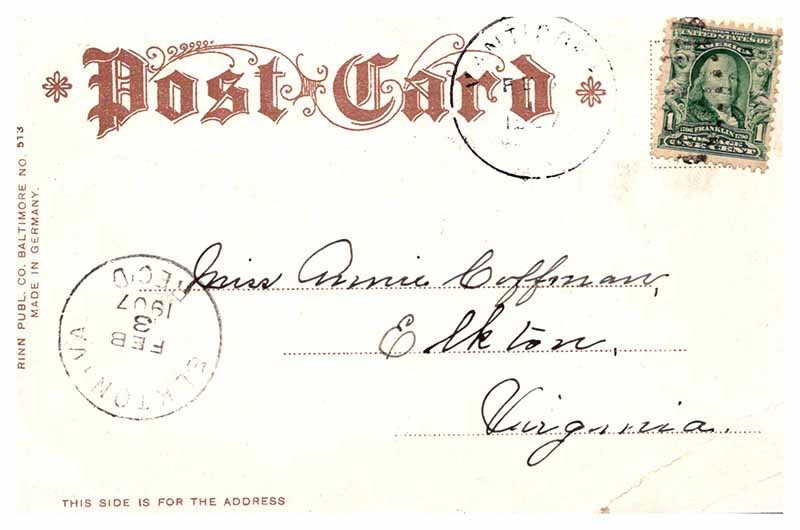 Post Card
SERIES 1902
UNITED STATES OF
AMERICA
1706 FRANKLIN 1790
1 POSTAGE 1
ONE CENT
RINN PUBL. CO. BALTIMORE NO. 513
MADE IN GERMANY.
Miss Annie Coffman,
Elkton,
Virginia.
ELKTON, VA.
FEB
3
1907
REC'D
THIS SIDE IS FOR THE ADDRESS